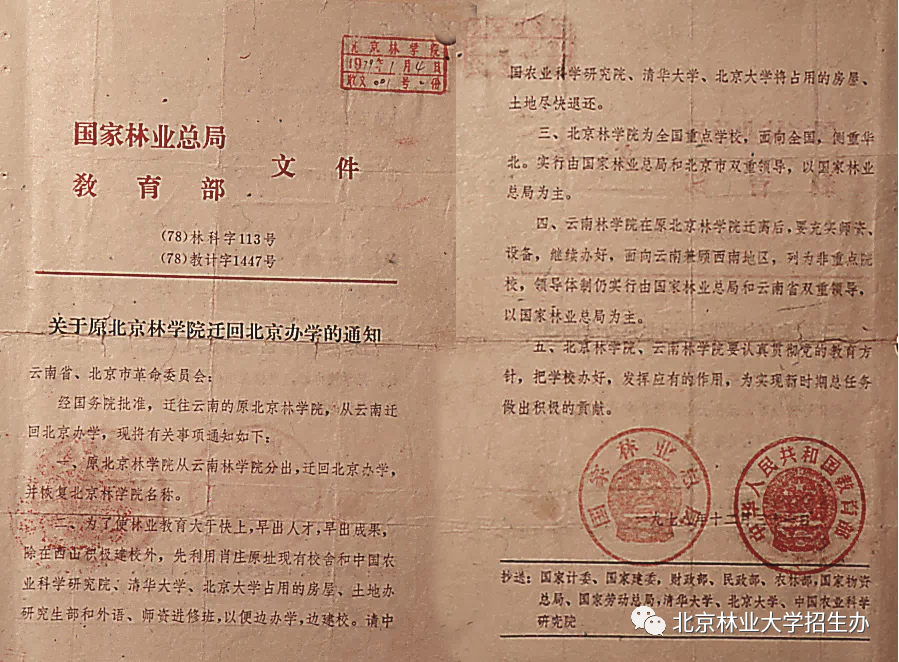 北京林学院
1979年1月4日
收文001号 份
国家林业总局
教育部
文件
(78)林科字113号
(78)教计字1447号
关于原北京林学院迁回北京办学的通知
云南省、北京市革命委员会：
经国务院批准，迁往云南的原北京林学院，从云南迁
回北京办学，现将有关事项通知如下：
一、原北京林学院从云南林学院分出，迁回北京办学，
并恢复北京林学院名称。
二、为了使林业教育大干快上，早出人才，早出成果，
除在西山积极建校外，先利用肖庄原址现有校舍和中国农
业科学研究院、清华大学、北京大学占用的房屋、土地办
研究生部和外语、师资进修班，以便边办学，边建校。请中
国农业科学研究院、清华大学、北京大学将占用的房屋、
土地尽快退还。
三、北京林学院为全国重点学校，面向全国，侧重华
北。实行由国家林业总局和北京市双重领导，以国家林业
总局为主。
四、云南林学院在原北京林学院迁离后，要充实师资、
设备，继续办好，面向云南兼顾西南地区，列为非重点院
校，领导体制仍实行由国家林业总局和云南省双重领导，
以国家林业总局为主。
五、北京林学院、云南林学院要认真贯彻党的教育方
针，把学校办好，发挥应有的作用，为实现新时期总任务
做出积极的贡献。
国家林业总局
中华人民共和国教育部
一九七八年十二月 日
抄送：国家计委、国家建委，财政部、民政部、农林部，国家物资
总局、国家劳动总局，清华大学、北京大学、中国农业科学
研究院
北京林业大学招生办